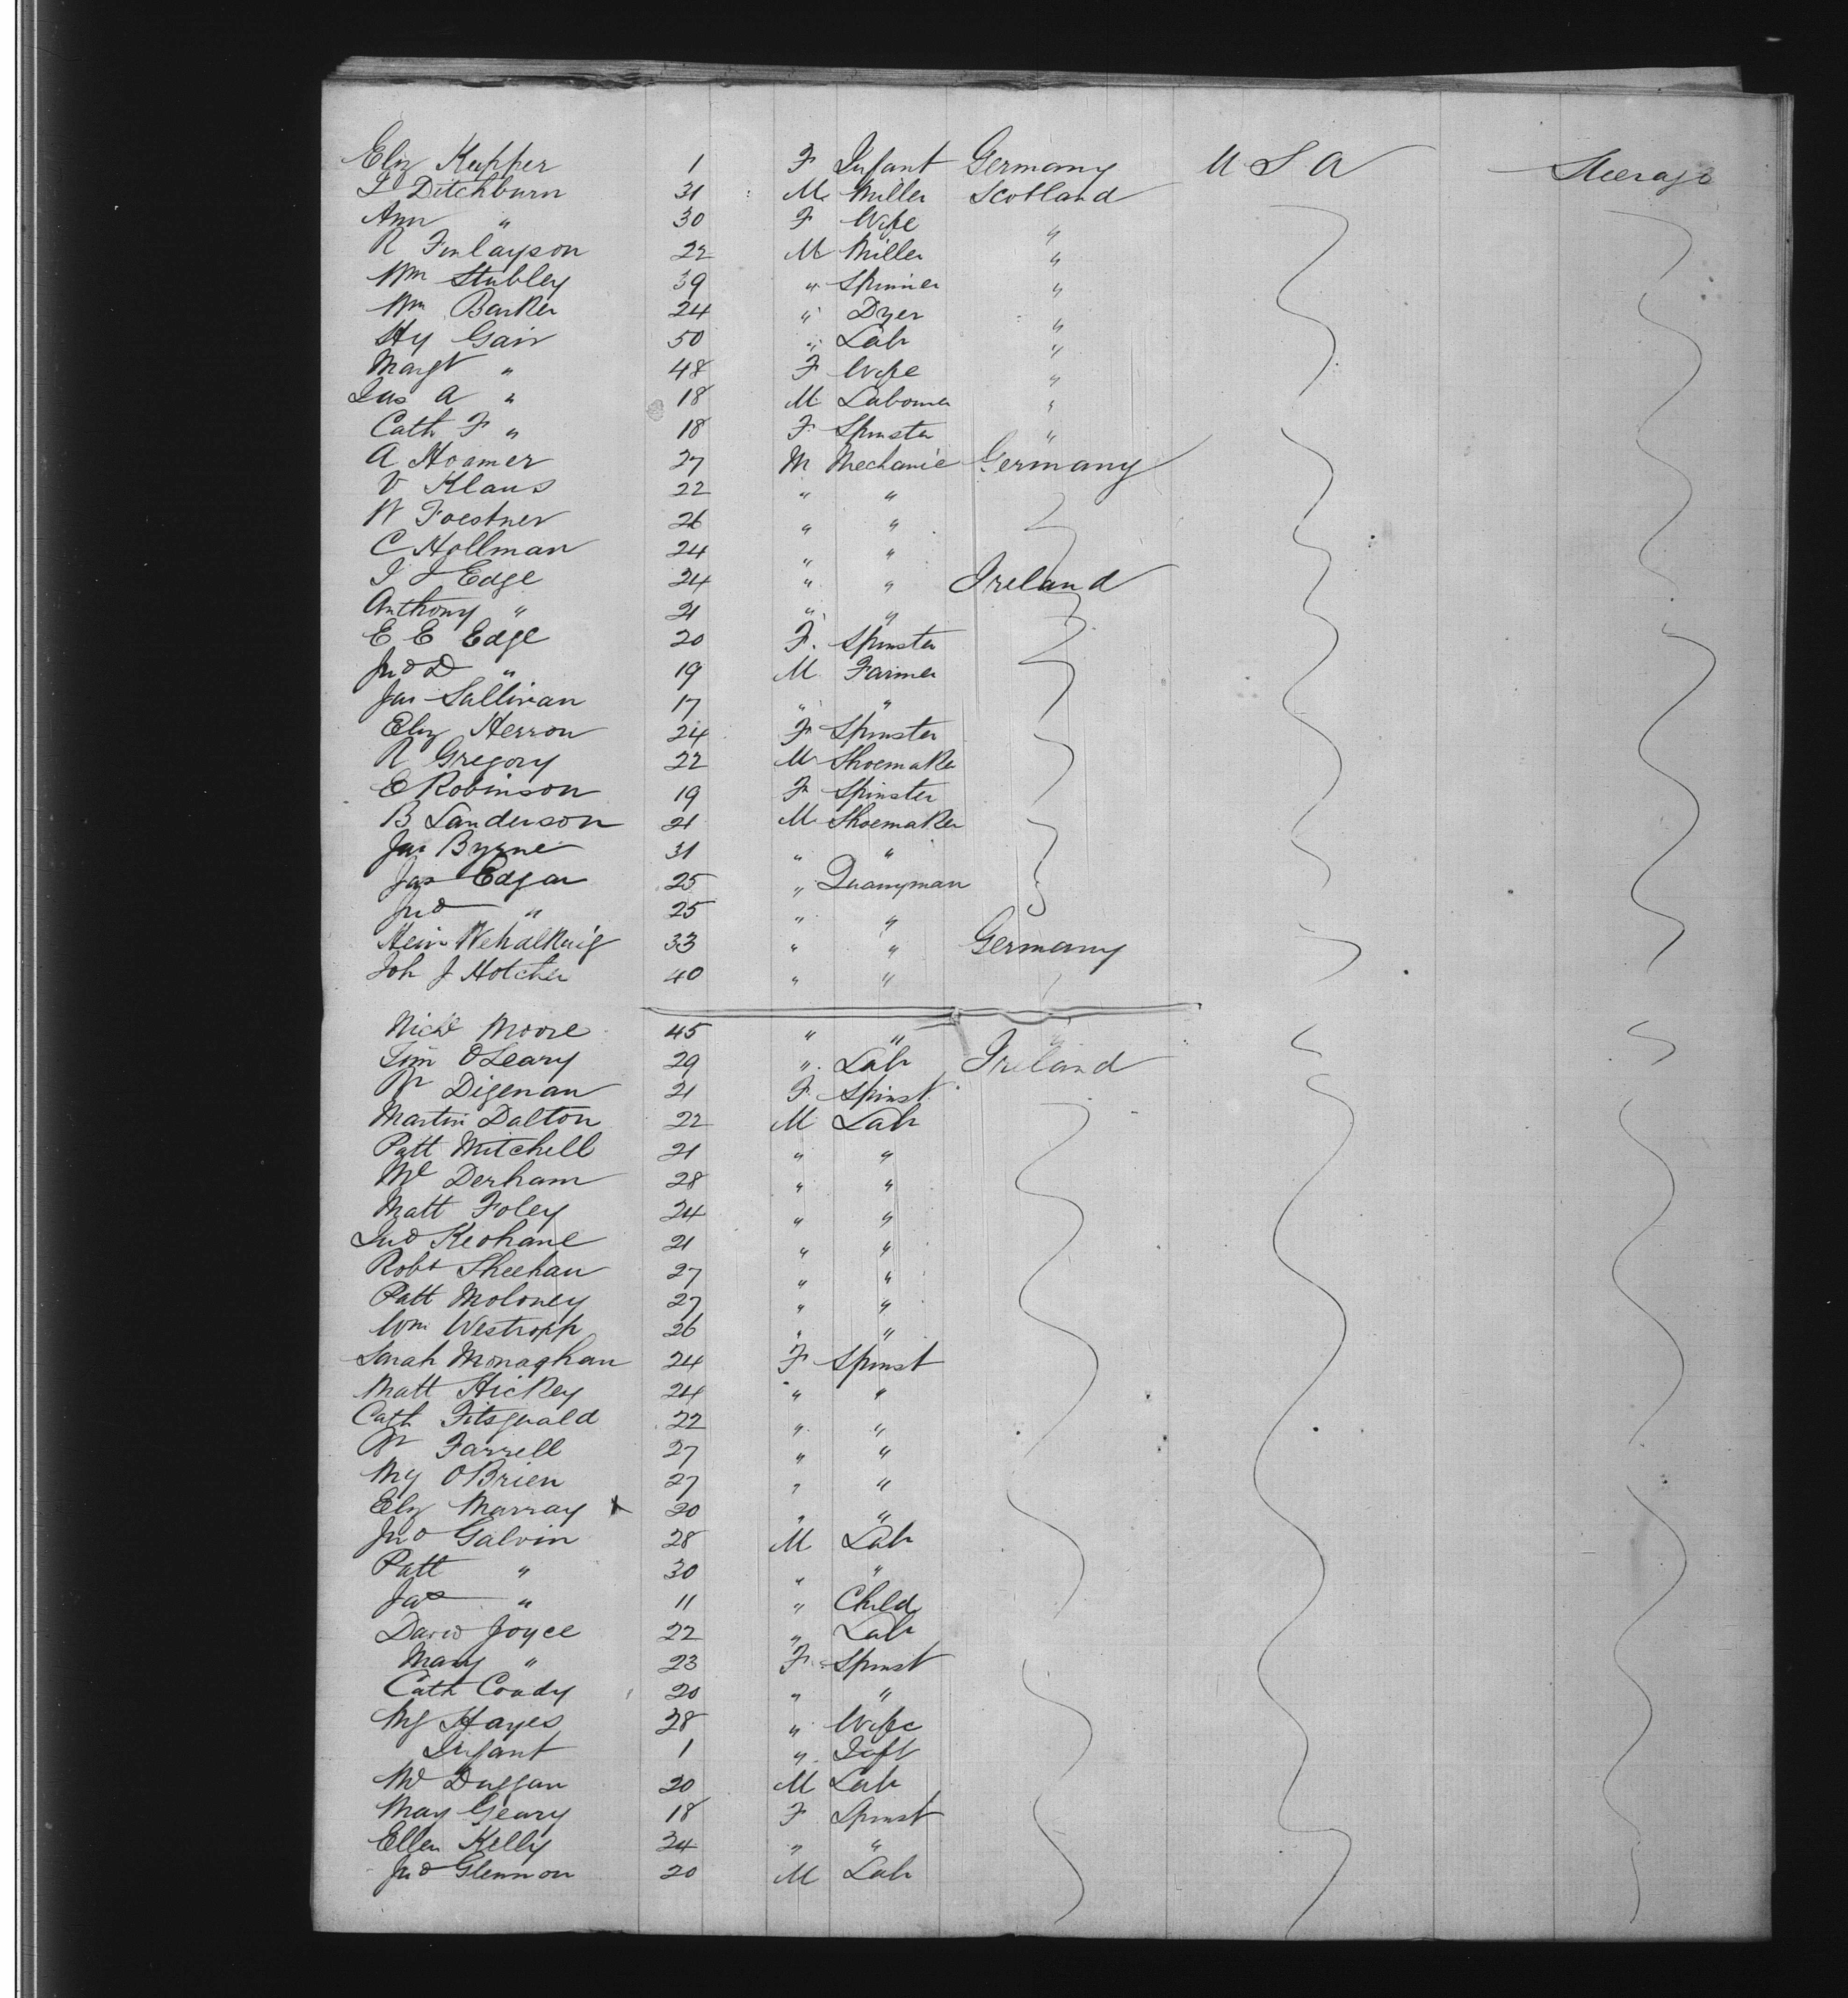 Eliz Kupper 1 F Infant Germany U S A Steerage
T Ditchburn 31 M Miller Scotland
Ann " 30 F Wife "
R Finlayson 22 M Miller "
Wm Stubley 39 " Spinner "
Wm Barker 24 " Dyer "
Hy Gair 50 " Lab "
Margt " 48 F Wife "
Jas A " 18 M Labourer "
Cath F " 18 F Spinster "
A Hoamer 27 M Mechanic Germany
V Klaus 22 " "
W Foestner 26 " "
C Hollman 24 " "
J J Edge 24 " " Ireland
Anthony " 21 " "
E E Edge 20 F. Spinster
Jno D " 19 M Farmer
Jas Sullivan 17 " "
Eliz Herron 24 F Spinster
R Gregory 22 M Shoemaker
E Robinson 19 F Spinster
B Sanderson 21 M Shoemaker
Jas Byrne 31 " "
Jas Edgar 25 " Quarryman
Jno " 25 " "
Hein 33 " " Germany
Joh J Hotcher 40 " "
Nichl Moore 45 " "
Tim OLeary 29 " Lab Ireland
Digenan 21 F Spinst
Martin Dalton 22 M Lab
Patt Mitchell 21 " "
Ml Derham 28 " "
Matt Foley 24 " "
Jno Keohane 21 " "
Robt Sheehan 27 " "
Patt Moloney 27 " "
Wm Westropp 26 " "
Sarah Monaghan 24 F Spinst
Matt Hickey 24 " "
Cath Fitsgerald 22 " "
Farrell 27 " "
My OBrien 27 " "
Eliz Murray x 20 " "
Jno Galvin 28 M Lab
Patt " 30 " "
Jas " 11 " Child
David Joyce 22 " Lab
Mary " 23 F Spinst
Cath Coady 20 " "
My Hayes 28 " Wife
Infant 1 " Inft
Ml Duggan 20 M Lab
May Geary 18 F Spinst
Ellen Kelly 24 " "
Jno Glennon 20 M Lab